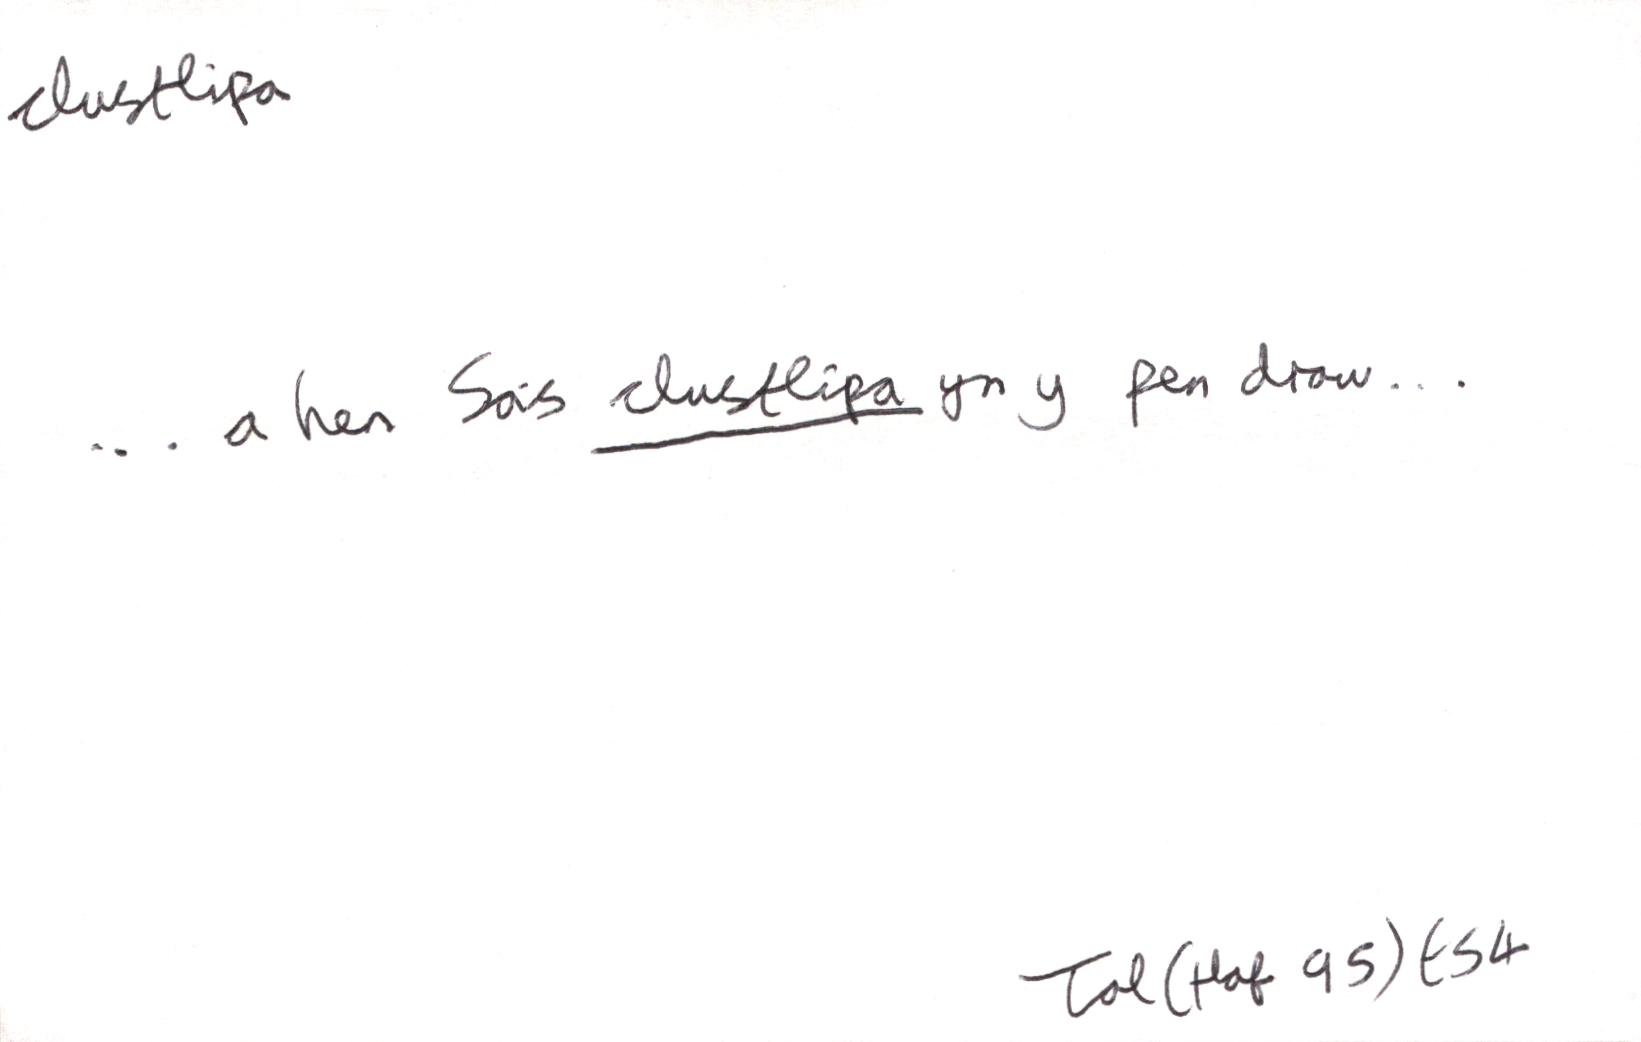 clustlipa
... a hen Sais clustlipa yn y pen draw...
Tal (Haf 95) t54